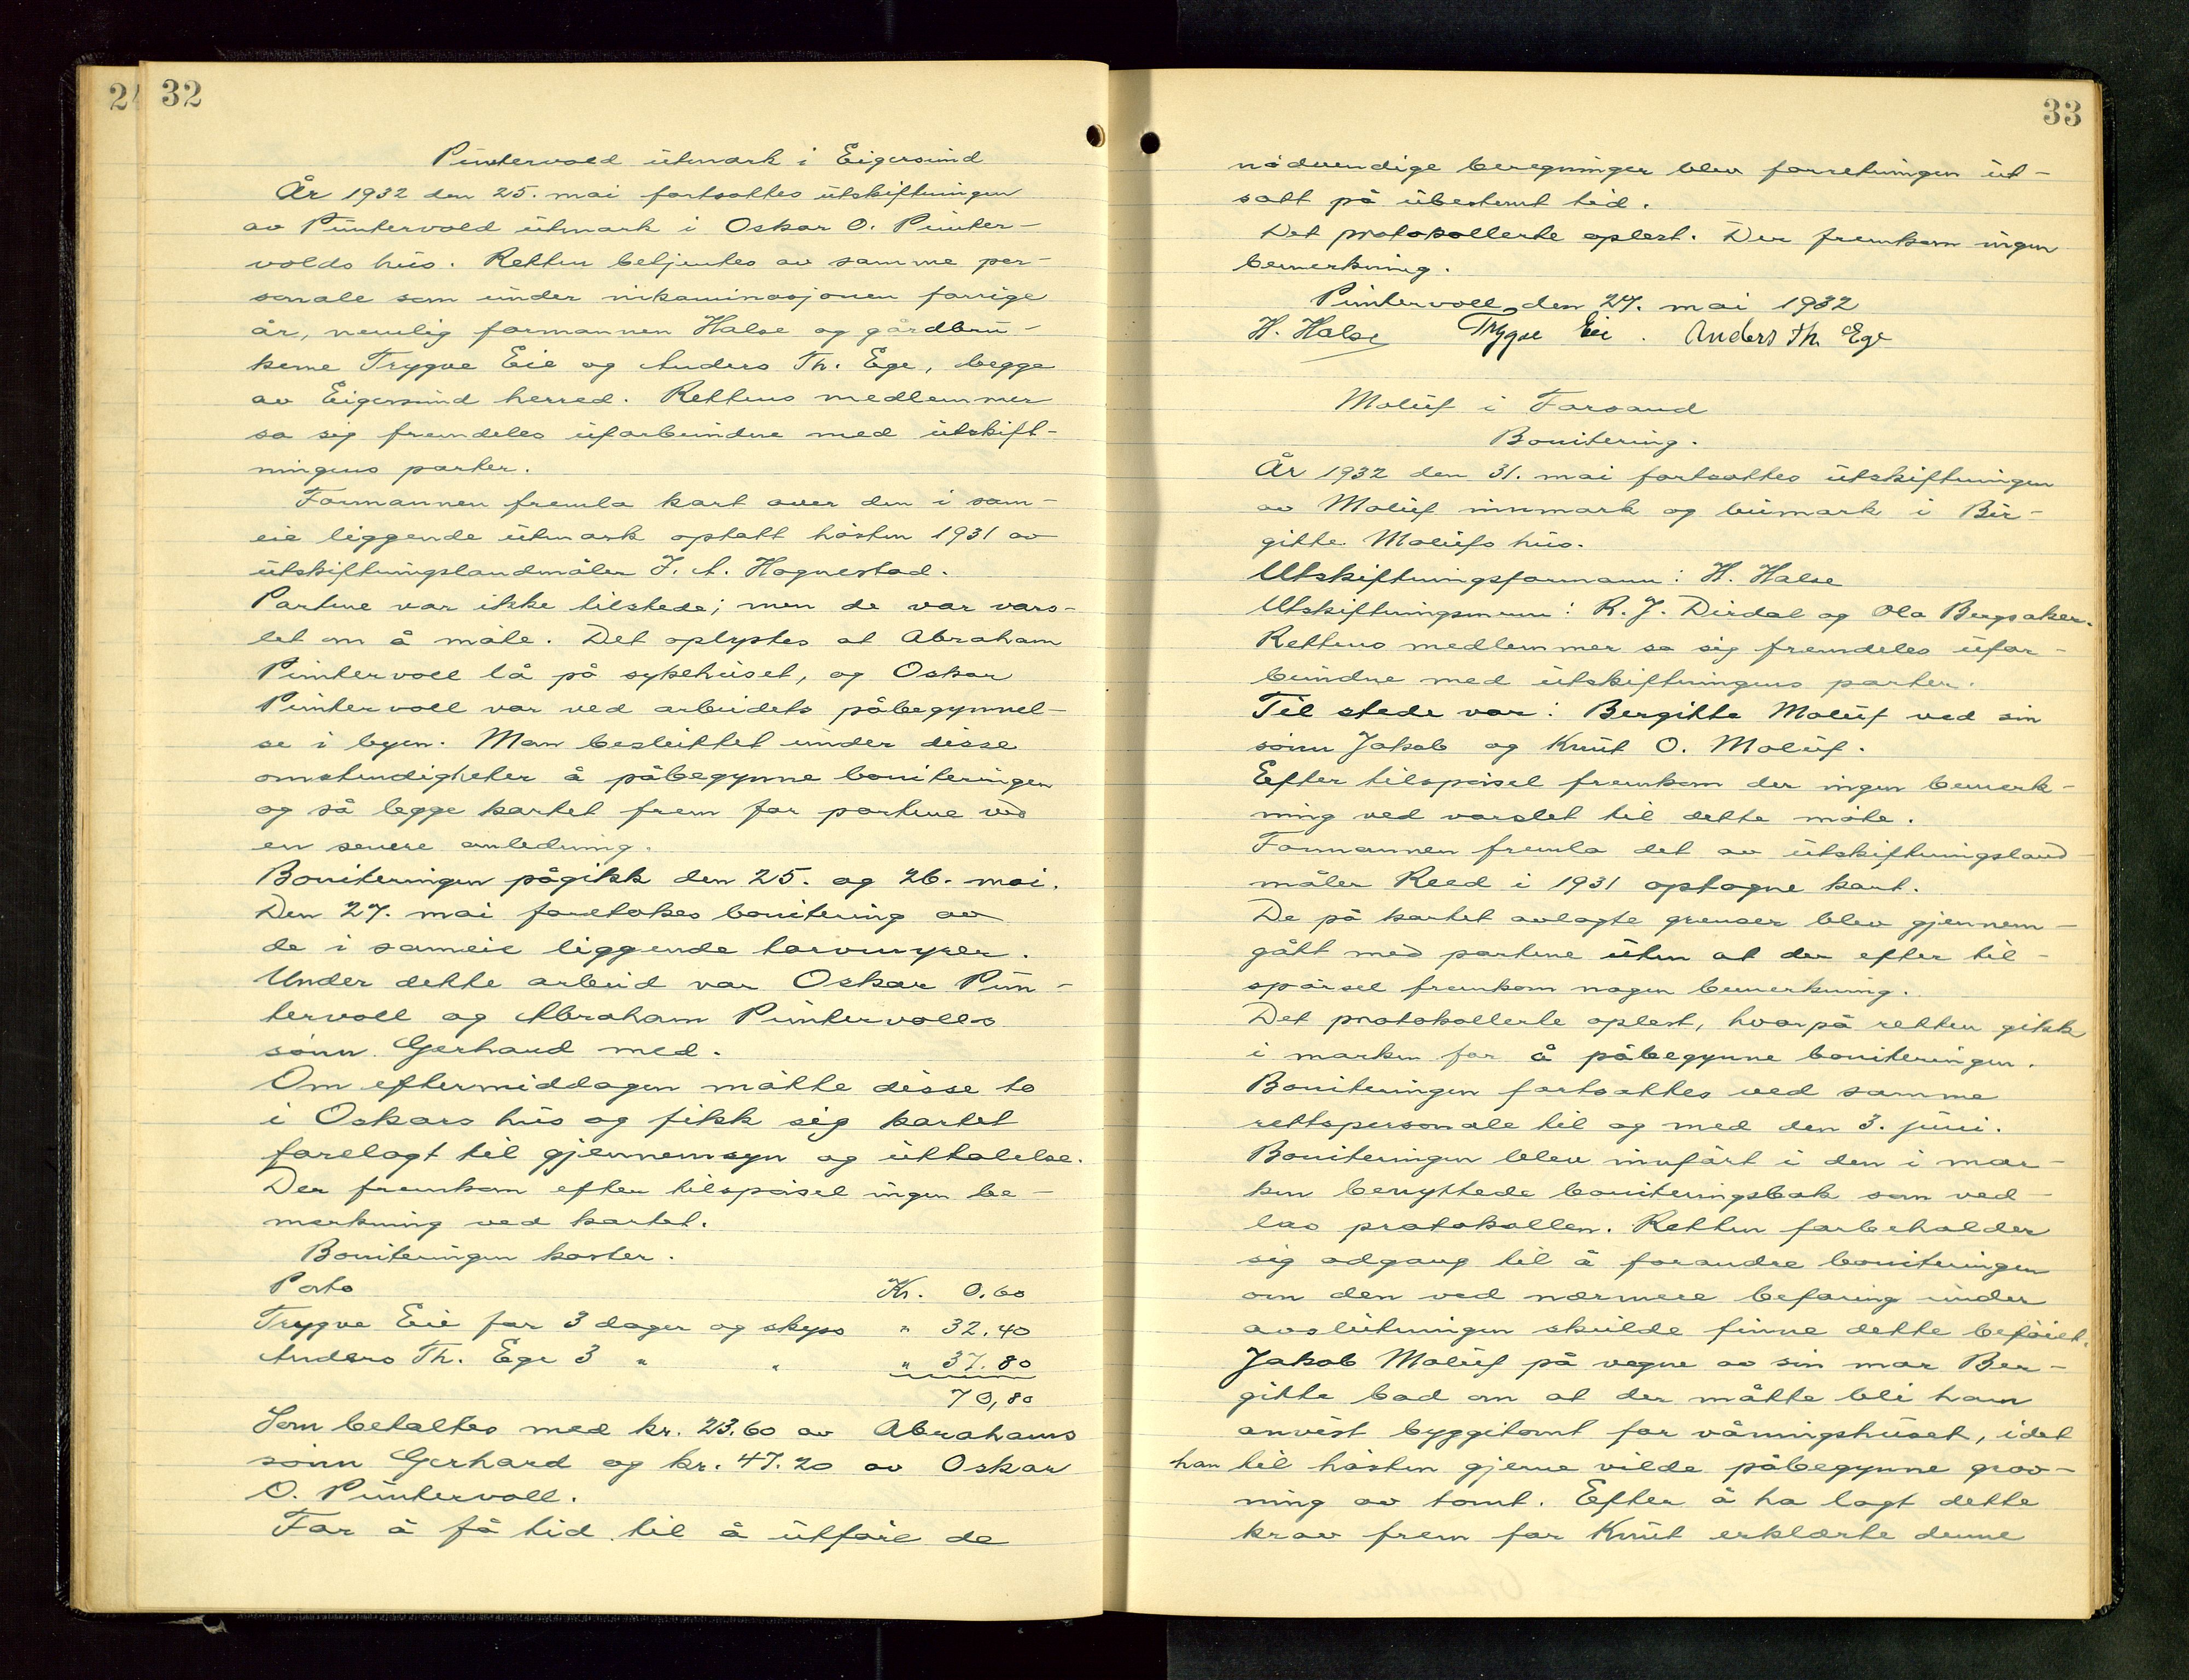 24 32
Puntervold utmark i Eigersund
År 1932 den 25. mai fortsattes utskiftningen
av Puntervold utmark i Oskar O. Punter-
volds hus. Retten betjentes av samme per-
sonale som under rikaminasjonen forrige
år, nemlig formannen Halse og gårdbru-
kerne Trygve Eie og Anders Th. Ege, begge
av Eigersund herred. Rettens medlemmer
sa sig fremdeles uforbundne med utskift-
ningens parter.
Formannen fremla kart over den i sam-
eie liggende utmark optatt høsten 1931 av
utskiftningslandmåler J. A. Hognestad.
Partene var ikke tilstede; men de var vars-
let om å møte. Det oplystes at Abraham
Puntervoll lå på sykehuset, og Oskar
Puntervoll var ved arbeidets påbegynnel-
se i byen. Man besluttet under disse
omstendigheter å påbegynne boniteringen
og så legge kartet frem for partene ved
en senere anledning.
Boniteringen pågikk den 25. og 26. mai.
Den 27. mai foretokes bonitering av
de i sameie liggende torvmyrer.
Under dette arbeid var Oskar Pun-
tervoll og Abraham Puntervolls
sønn Gerhard med.
Om eftermiddagen møtte disse to
i Oskars hus og fikk sig kartet
forelagt til gjennemsyn og uttalelse.
Der fremkom efter tilspørsel ingen be-
merkning ved kartet.
Boniteringen koster.
Porto Kr. 0.60
Trygve Eie for 3 dager og skyss " 32.40
Anders Th. Ege 3 " " " 37.80
70,80
Som betaltes med kr. 23.60 av Abrahams
sønn Gerhard og kr. 47.20 av Oskar
O. Puntervoll.
For å få tid til å utføre de
33
nødvendige beregninger blev forretningen ut-
satt på ubestemt tid.
Det protokollerte oplest. Der fremkom ingen
bemerkning.
Puntervoll, den 27. mai 1932
H. Halse Trygve Eie . Anders Th. Ege
Moluf i Forsand
Bonitering.
År 1932 den 31. mai fortsattes utskiftningen
av Moluf innmark og bumark i Bir-
gitte Molufs hus.
Utskiftningsformann: H. Halse
Utskiftningsmenn: R. J. Dirdal og Ola Bergsaker.
Rettens medlemmer sa sig fremdeles ufor-
bundne med utskiftningens parter.
Til stede var: Bergitte Moluf ved sin
sønn Jakob og Knut O. Moluf.
Efter tilspørsel fremkom der ingen bemerk-
ning ved varslet til dette møte.
Formannen fremla det av utskiftningsland-
måler Reed i 1931 optagne kart.
De på kartet avlagte grenser blev gjennem-
gått med partene uten at der efter til-
spørsel fremkom nogen bemerkning.
Det protokollerte oplest, hvorpå retten gikk
i marken for å påbegynne boniteringen.
Boniteringen fortsattes ved samme
rettspersonale til og med den 3. juni.
Boniteringen blev innført i den i mar-
ken benyttede boniteringsbok som ved-
las protokollen. Retten forbeholder
sig adgang til å forandre boniteringen
om den ved nærmere befaring under
avslutningen skulde finne dette beføiet.
Jakob Moluf på vegne av sin mor Ber-
gitte bad om at der måtte bli ham
anvist byggetomt for våningshuset, idet
han til høsten gjerne vilde påbegynne grav-
ning av tomt. Efter å ha lagt dette
krav frem for Knut erklærte denne